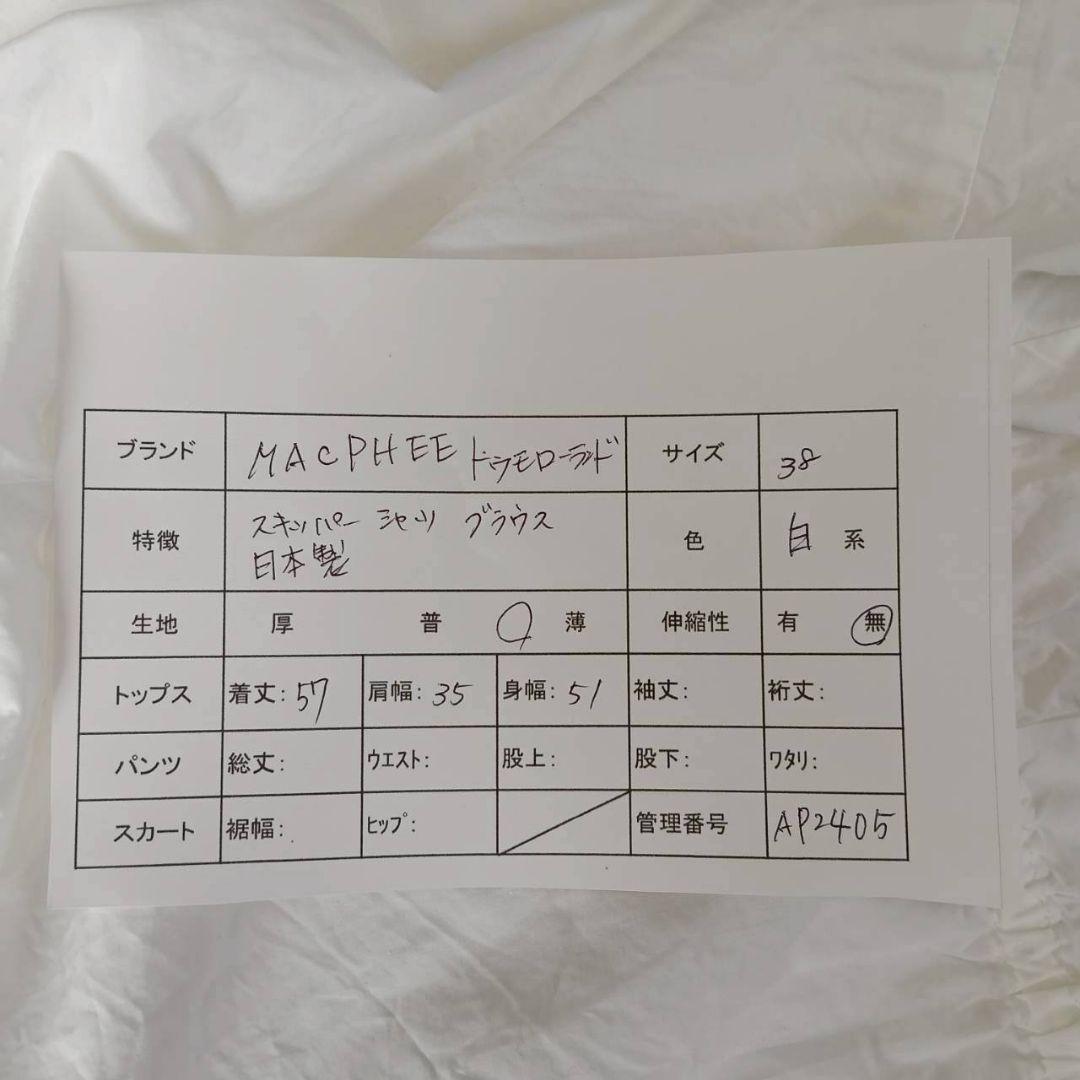 ブランド MACPHEE トゥモローランド サイズ 38
特徴 スキッパー シャツ ブラウス
日本製 色 白 系
生地 厚 普 薄 伸縮性 有 無
トップス 着丈: 57 肩幅: 35 身幅: 51 袖丈: 裄丈:
パンツ 総丈: ウエスト: 股上: 股下: ワタリ:
スカート 裾幅: ヒップ: 管理番号 AP2405